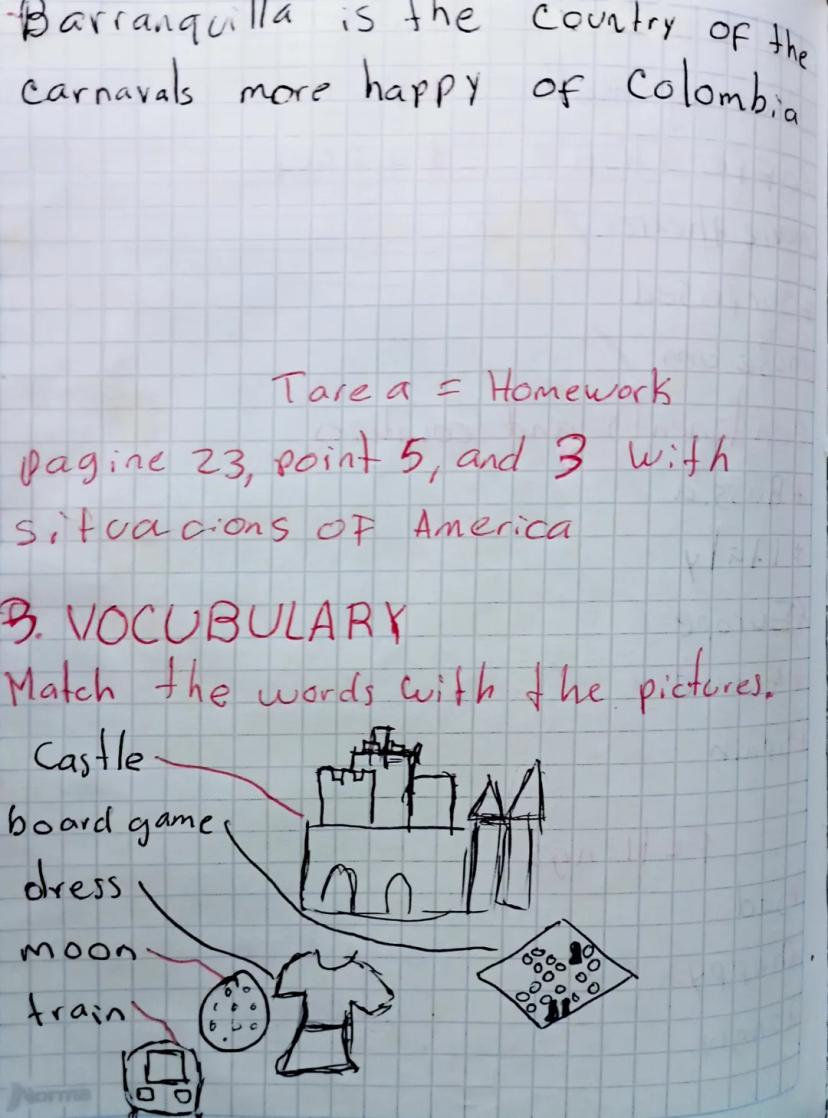 Barranquilla is the country of the
carnavals more happy of Colombia
Tarea = Homework
pagine 23, point 5, and 3 with
situacions of America
3. VOCUBULARY
Match the words with the pictures.
Castle
board game
dress
moon
train
Norma